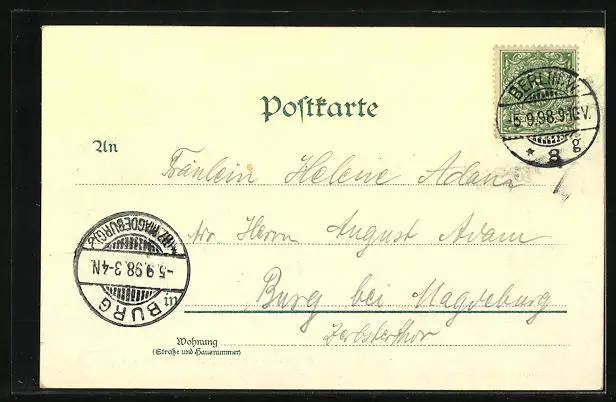 Postkarte
BERLIN.W.
-5.9.98.9-10V.
* 8 g
An
Fräulein Helene Adam
Herrn August Adam
(BZ. MAGDEBURG)
-5.9.98.3-4N.
BURG
in
Burg bei Magdeburg
Zerbsterthor
Wohnung
(Straße und Hausnummer)